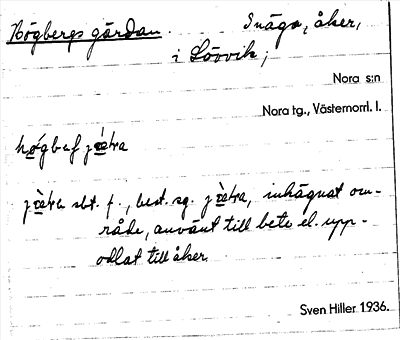 Högbergs gärdan. Inäga, åker,
i Lövvik,
Nora s:n
Nora tg., Västernorrl. l.
sbt. f., best. sg. inhägnat om-
råde, använt till bete el. upp-
odlat till åker.
Sven Hiller 1936.